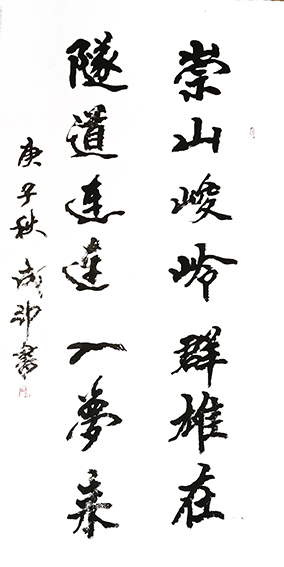 崇山峻岭群雄在
隧道连连入梦来
庚子秋成印书